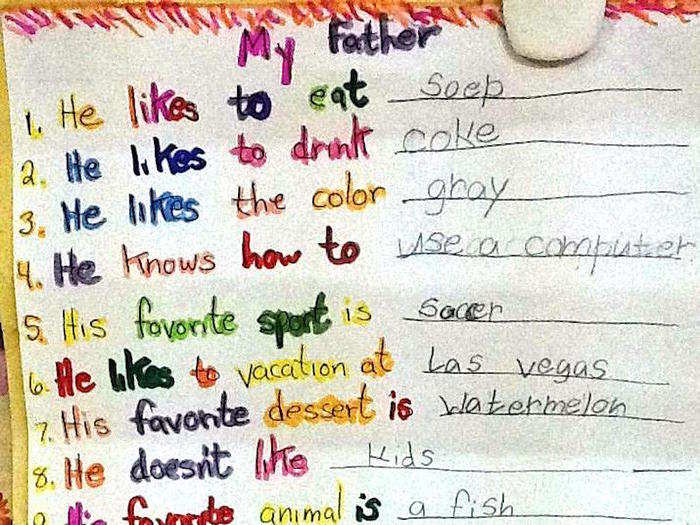 My Father
1. He likes to eat Soep
2. He likes to drink coke
3. He likes the color gray
4. He knows how to use a computer
5. His favorite sport is Soccer
6. He likes to vacation at Las vegas
7. His favorite dessert is Watermelon
8. He doesn't like Kids
His favorite animal is a fish